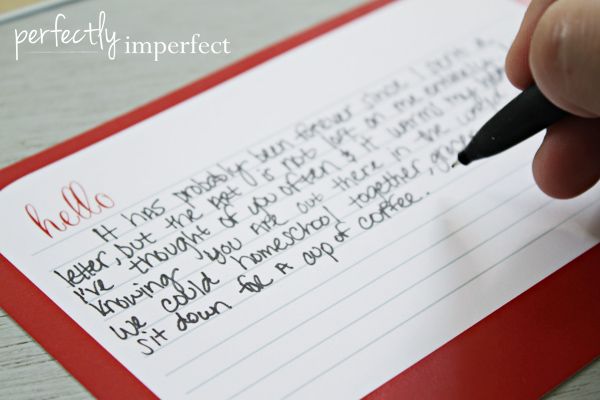 perfectly imperfect
hello
It has probably been forever since I a
letter, but the art is not lost on me entirely.
I've thought of you often & it warms my
knowing you are out there in the world.
we could homeschool together,
sit down for a cup of coffee.